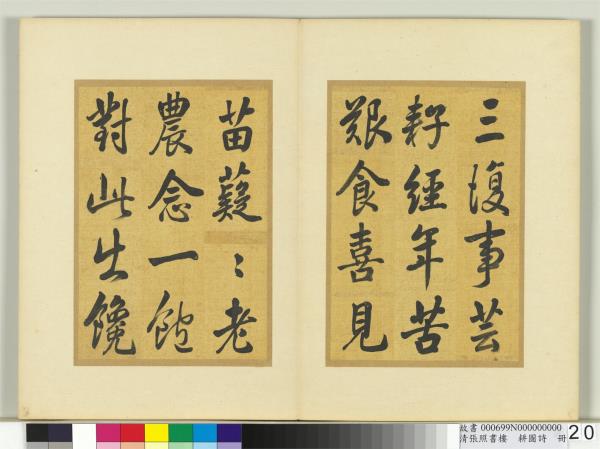 三復事芸
耔經年苦
艱食喜見
苗薿〻老
農念一飽
對此生饞
故書 000699N000000000
清張照書樓 耕圖詩 冊
20